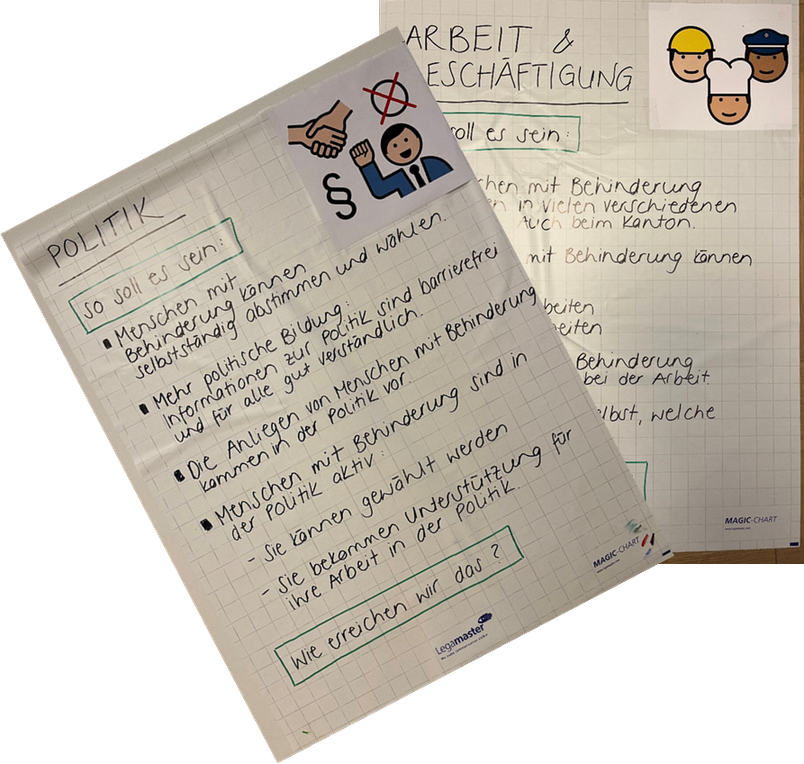 POLITIK
so soll es sein:
Menschen mit
Behinderung können
selbstständig abstimmen und wählen.
Mehr politische Bildung:
Informationen zur Politik sind barrierefrei
und für alle gut verständlich.
Die Anliegen von Menschen mit Behinderung
kommen in der Politik vor.
Menschen mit Behinderung sind in
der Politik aktiv:
- Sie können gewählt werden
- Sie bekommen Unterstützung für
ihre Arbeit in der Politik.
Wie erreichen wir das?
Legamaster
MAGIC-CHART
ARBEIT &
ESCHÄFTIGUNG
soll es sein:
chen mit Behinderung
en in vielen verschiedenen
Auch beim Kanton.
mit Behinderung können
beiten
eiten
Behinderung
bei der Arbeit.
elbst, welche
MAGIC-CHART